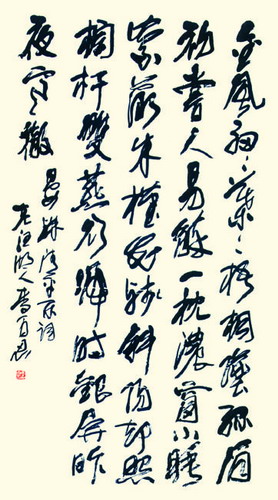 金風細〻葉〻梧桐墜綠酒
初嘗人易醉一枕濃窗小睡
紫薇朱槿花殘斜陽却照
欄杆雙燕欲歸時銀屏昨
夜寒微
晏殊清平樂詞